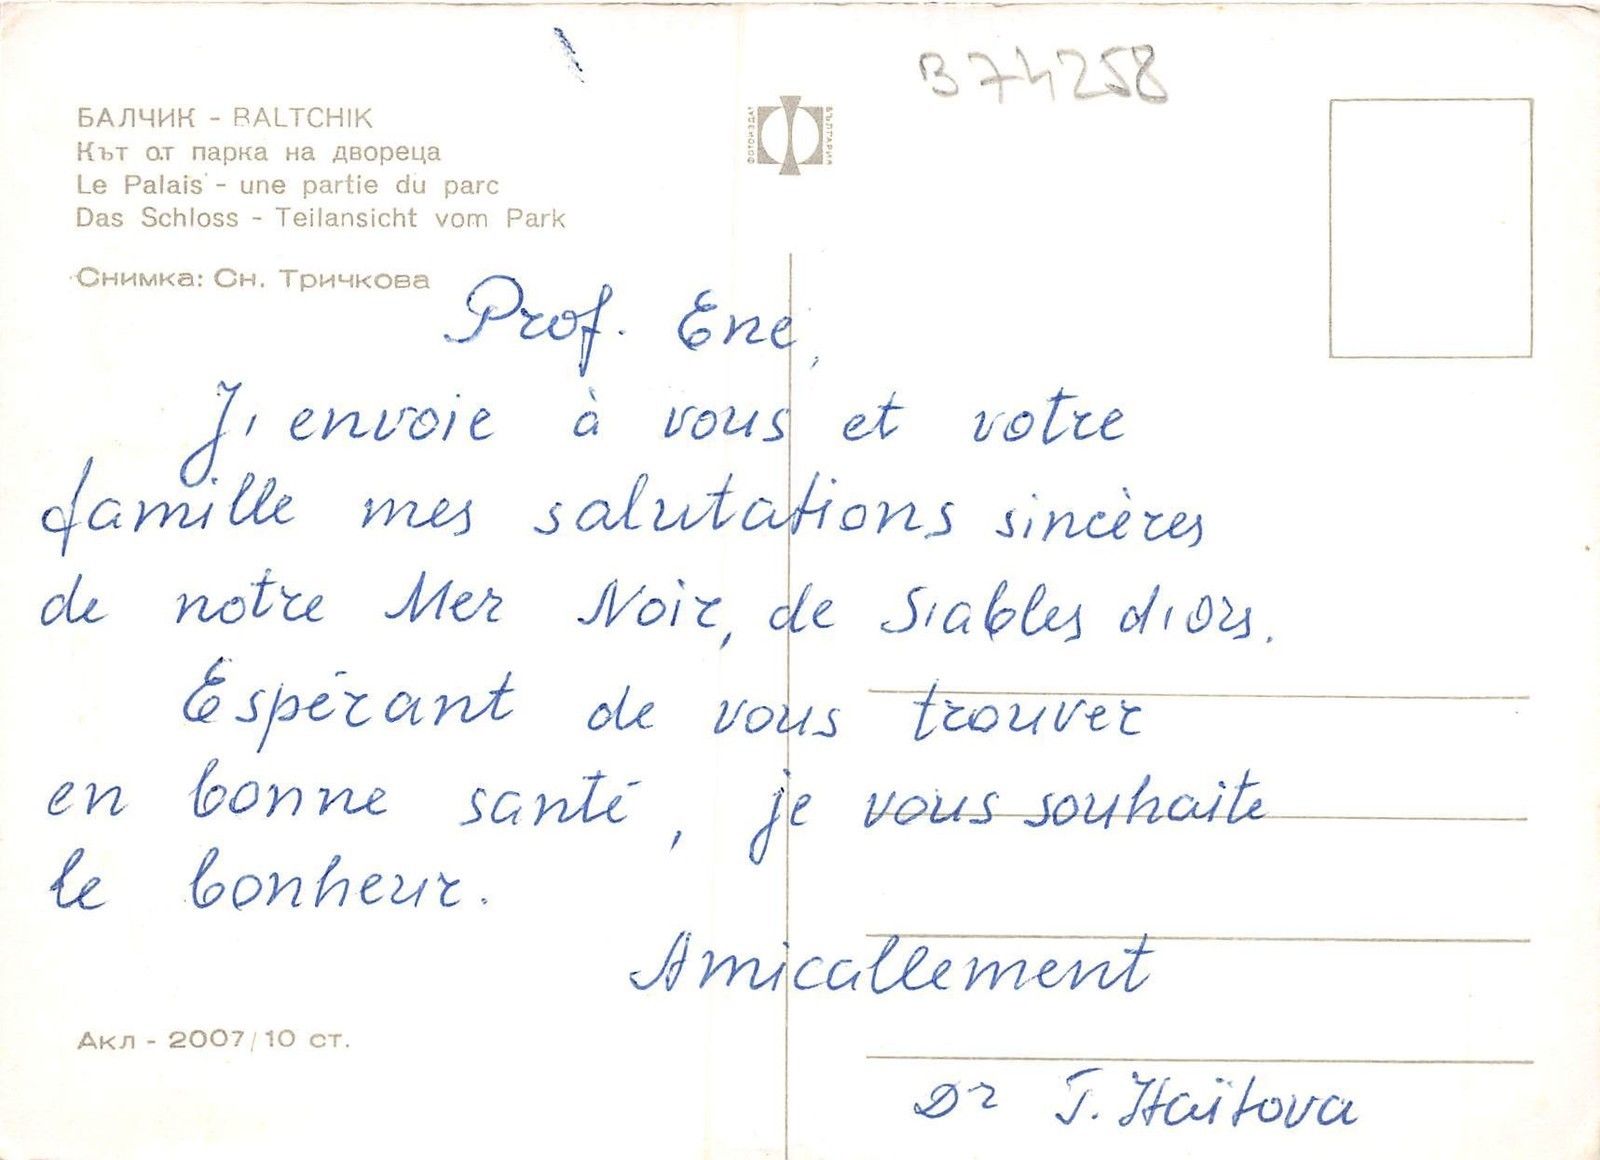 B 74258
БАЛЧИК - BALTCHIK
Кът от парка на двореца
Le Palais - une partie du parc
Das Schloss - Teilansicht vom Park
Снимка: Сн. Тричкова
ФОТОИЗДАТ
БЪЛГАРИЯ
Prof. Ene,
J'envoie à vous et votre
famille mes salutations sincères
de notre Mer Noir, de S'ables d'ors.
Espérant de vous trouver
en bonne santé, je vous souhaite
le bonheur.
Amicallement
Dr T. Haïtova
Акл - 2007/10 ст.